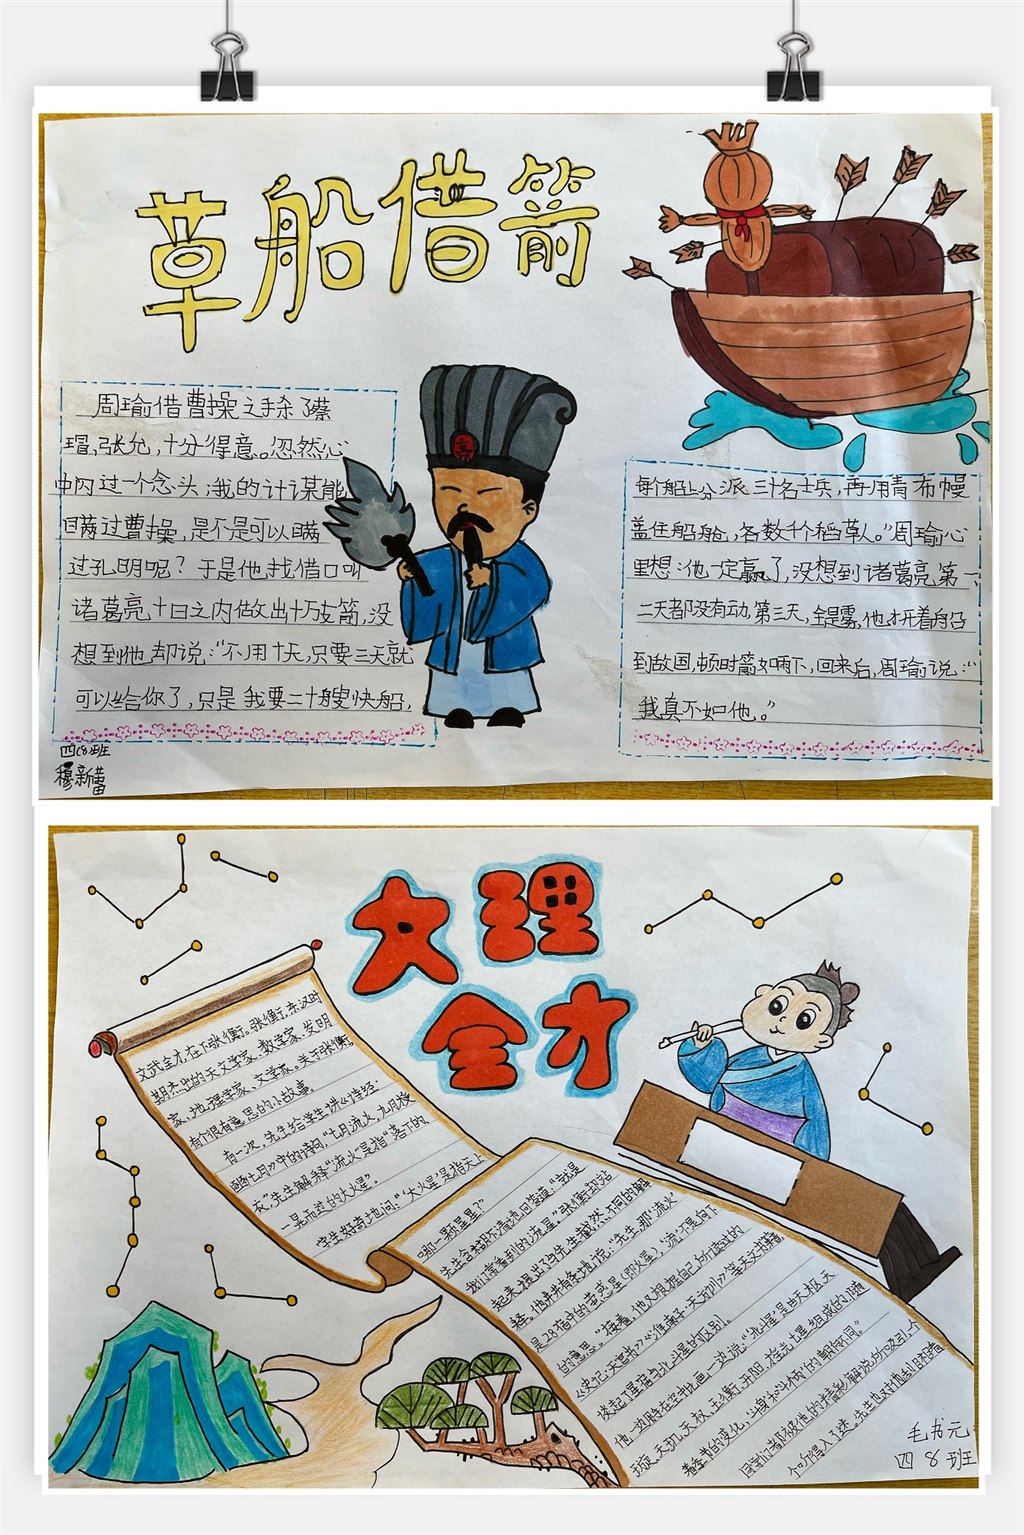 草船借箭
周瑜借曹操之手除了蔡
瑁,张允,十分得意。忽然心
中闪过一个念头:我的计谋能
瞒过曹操,是不是可以瞒
过孔明呢?于是他找借口叫
诸葛亮十日之内做出十万支箭,没
想到他却说:“不用十天,只要三天就
可以给你了,只是我要二十艘快船,
亮
每个船上分派三十名士兵,再用青布幔
盖住船舱,各数千个稻草人。”周瑜心
里想:他一定赢了,没想到诸葛亮第一、
二天都没有动,第三天,全是雾,他才开着船
到敌国,顿时箭如雨下,回来后,周瑜说:“
我真不如他。”
四(8)班
穆新蕾
文理
全才
文武全才,在下张衡。张衡,东汉时
期杰出的天文学家、数学家、发明
家、地理学家、文学家。关于张衡,
有个很有意思的小故事。
有一次,先生给学生讲《诗经·
七月》中的诗词,“七月流火,九月授
衣”先生解释“流火”是指“落下的、
一晃而过的大火星”。
学生好奇地问:“‘大火星’是指天上
哪一颗星星?”
先生含糊不清地回答道:“就是
我们常看到的流星。”张衡却站
起来,提出了与先生截然不同的解
释。他井井有条地说:“先生,那‘流火’
是28宿中的荧惑星(即火星),‘流’不是向下
的意思。”接着,他又根据自己所读过的
《史记·天官书》《淮南子·天文训》等天文书籍,
谈起了星宿与北斗星的区别。
他一边用手在空中比画,一边说:“‘北斗星’是由天枢、天
璇、天玑、天权、玉衡、开阳、摇光七星组成的,随
着季节的变化,斗身和斗柄的朝向不同。”
同学们都被他的精彩解说所吸引,个
个听得入了迷。先生也对他刮目相看
毛书元
四8班